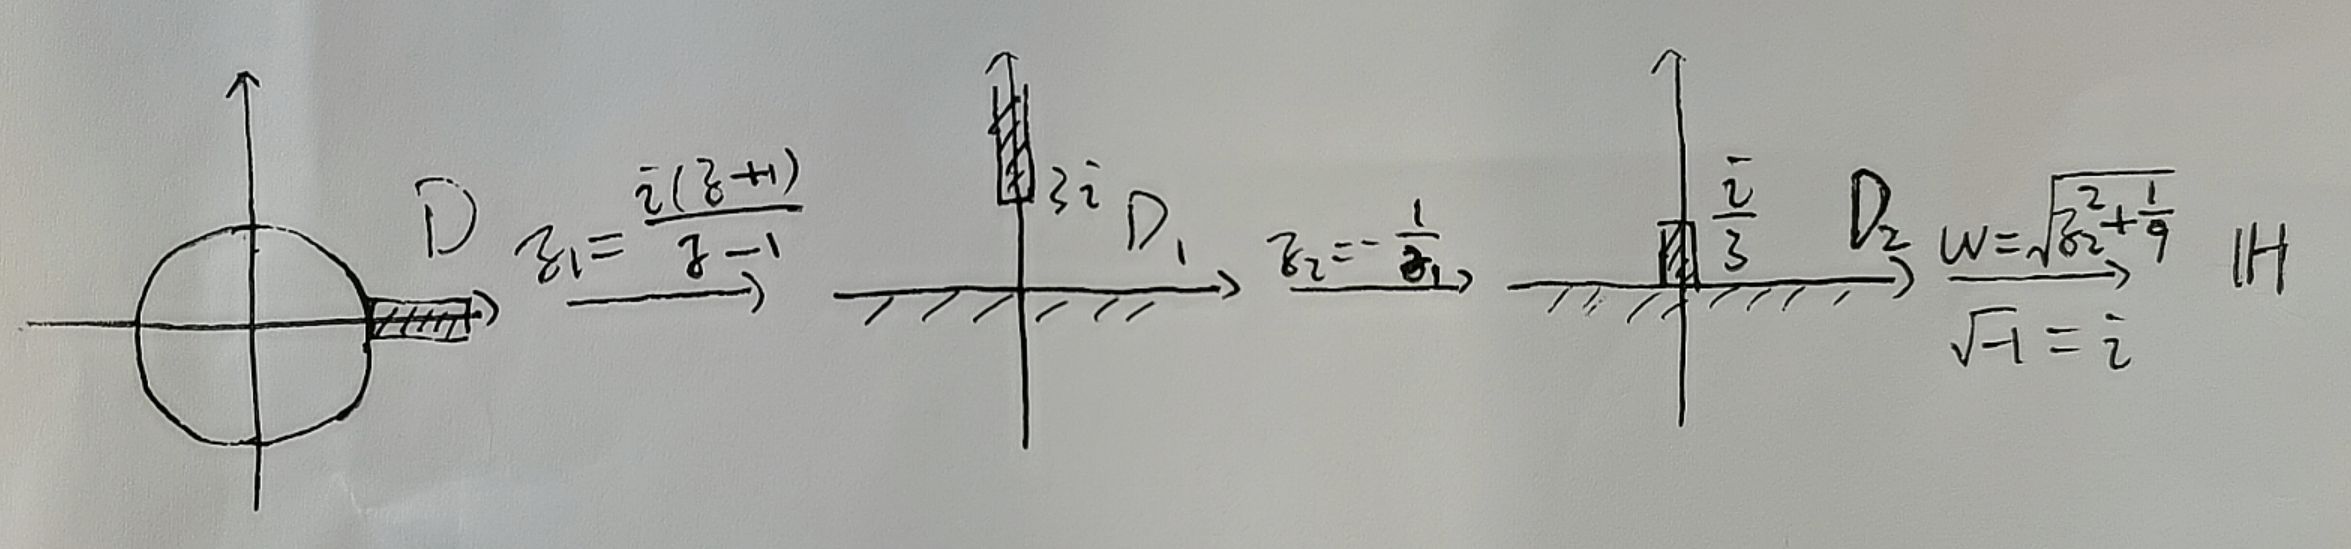 D
z₁ = i(z+1)/(z-1)
3i
D₁
z₂ = -1/z₁
i/3
D₂
w = √(z₂² + 1/9)
√-1 = i
ℍ